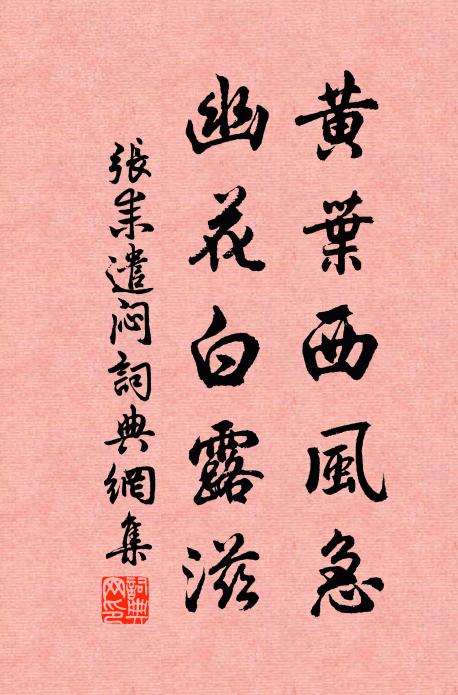 黃葉西風急
幽花白露滋
張耒遣悶詞典網集
詞典網印